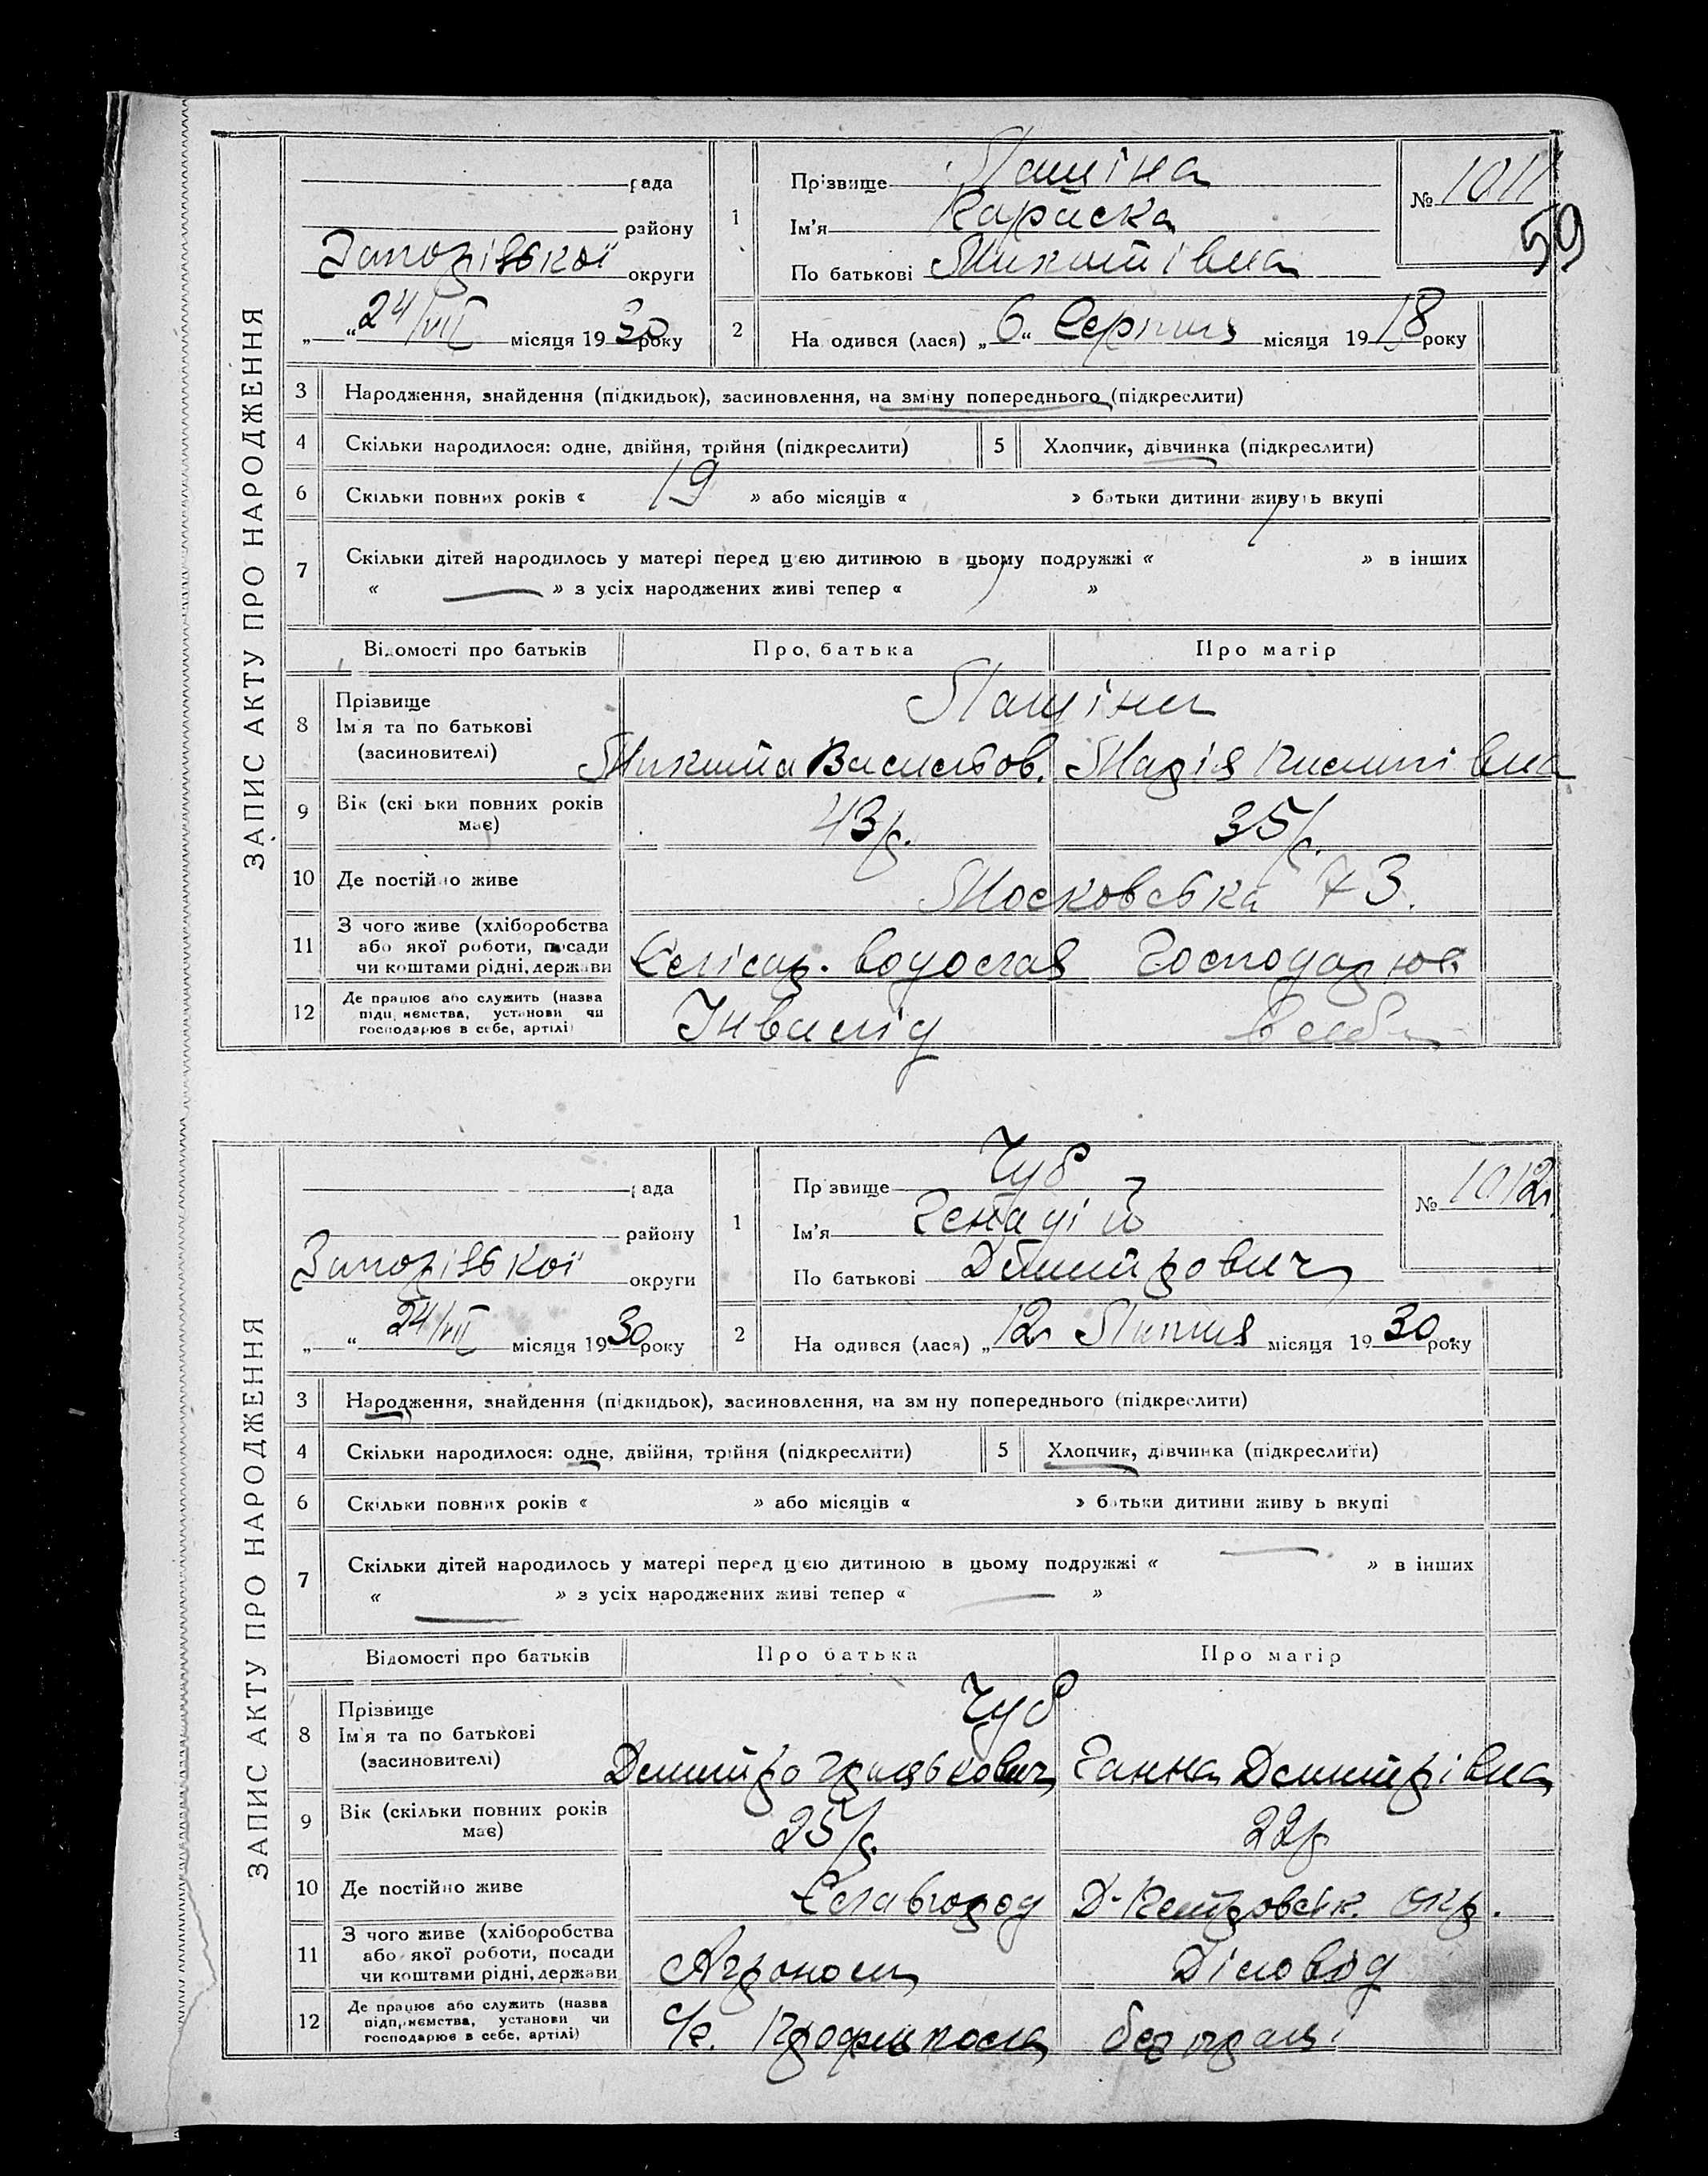 ЗАПИС АКТУ ПРО НАРОДЖЕННЯ
рада
району
Запорізької округи
„ “ 24/VII місяця 1930 року
1
Прізвище Лашіна
Ім'я Рариска
По батькові Микитівна
№ 1011
59
2
На одився (лася) „6“ Серпня місяця 1918 року
3 Народження, знайдення (підкидьок), засиновлення, на зміну попереднього (підкреслити)
4 Скільки народилося: одне, двійня, трійня (підкреслити) 5 Хлопчик, дівчинка (підкреслити)
6 Скільки повних років « 19 » або місяців « » батьки дитини живуть вкупі
7 Скільки дітей народилось у матері перед цією дитиною в цьому подружжі « » в інших
« — » з усіх народжених живі тепер « »
Відомості про батьків Про батька Про матір
8 Прізвище
Ім'я та по батькові
(засиновителі)
Лашіни
Микита Васильов. Марія
9 Вік (скі ьки повних років має) 43 р. 35 р.
10 Де постійно живе Московська 73.
11 З чого живе (хліборобства
або якої роботи, посади
чи коштами рідні, держави
Слісар. Господарює
12 Де працює або служить (назва
підприємства, установи чи
господарює в себе, артілі)
Інвалід в себе
ЗАПИС АКТУ ПРО НАРОДЖЕННЯ
рада
району
Запорізької округи
„ “ 24/VII місяця 1930 року
1
Пр звище Чуб
Ім'я Генадій
По батькові Дмитрович
№ 1012
2
На одився (лася) „12 Липня місяця 1930 року
3 Народження, знайдення (підкидьок), засиновлення, на зм ну попереднього (підкреслити)
4 Скільки народилося: одне, двійня, трійня (підкреслити) 5 Хлопчик, дівчинка (підкреслити)
6 Скільки повних років « » або місяців « » батьки дитини живу ь вкупі
7 Скільки дітей народилось у матері перед цією дитиною в цьому подружжі « — » в інших
« — » з усіх народжених живі тепер « — »
Відомості про батьків Про батька Про матір
8 Прізвище
Ім'я та по батькові
(засиновителі)
Чуб
Дмитро Грицькович Ганна Дмитрівна
9 Вік (скільки повних років має) 25 р. 22 р
10 Де постійно живе Славгород Д-Петровськ. Окр.
11 З чого живе (хліборобства
або якої роботи, посади
чи коштами рідні, держави
Агроном Діловод
12 Де працює або служить (назва
підприємства, установи чи
господарює в себе, артілі)
Профшкола без праці